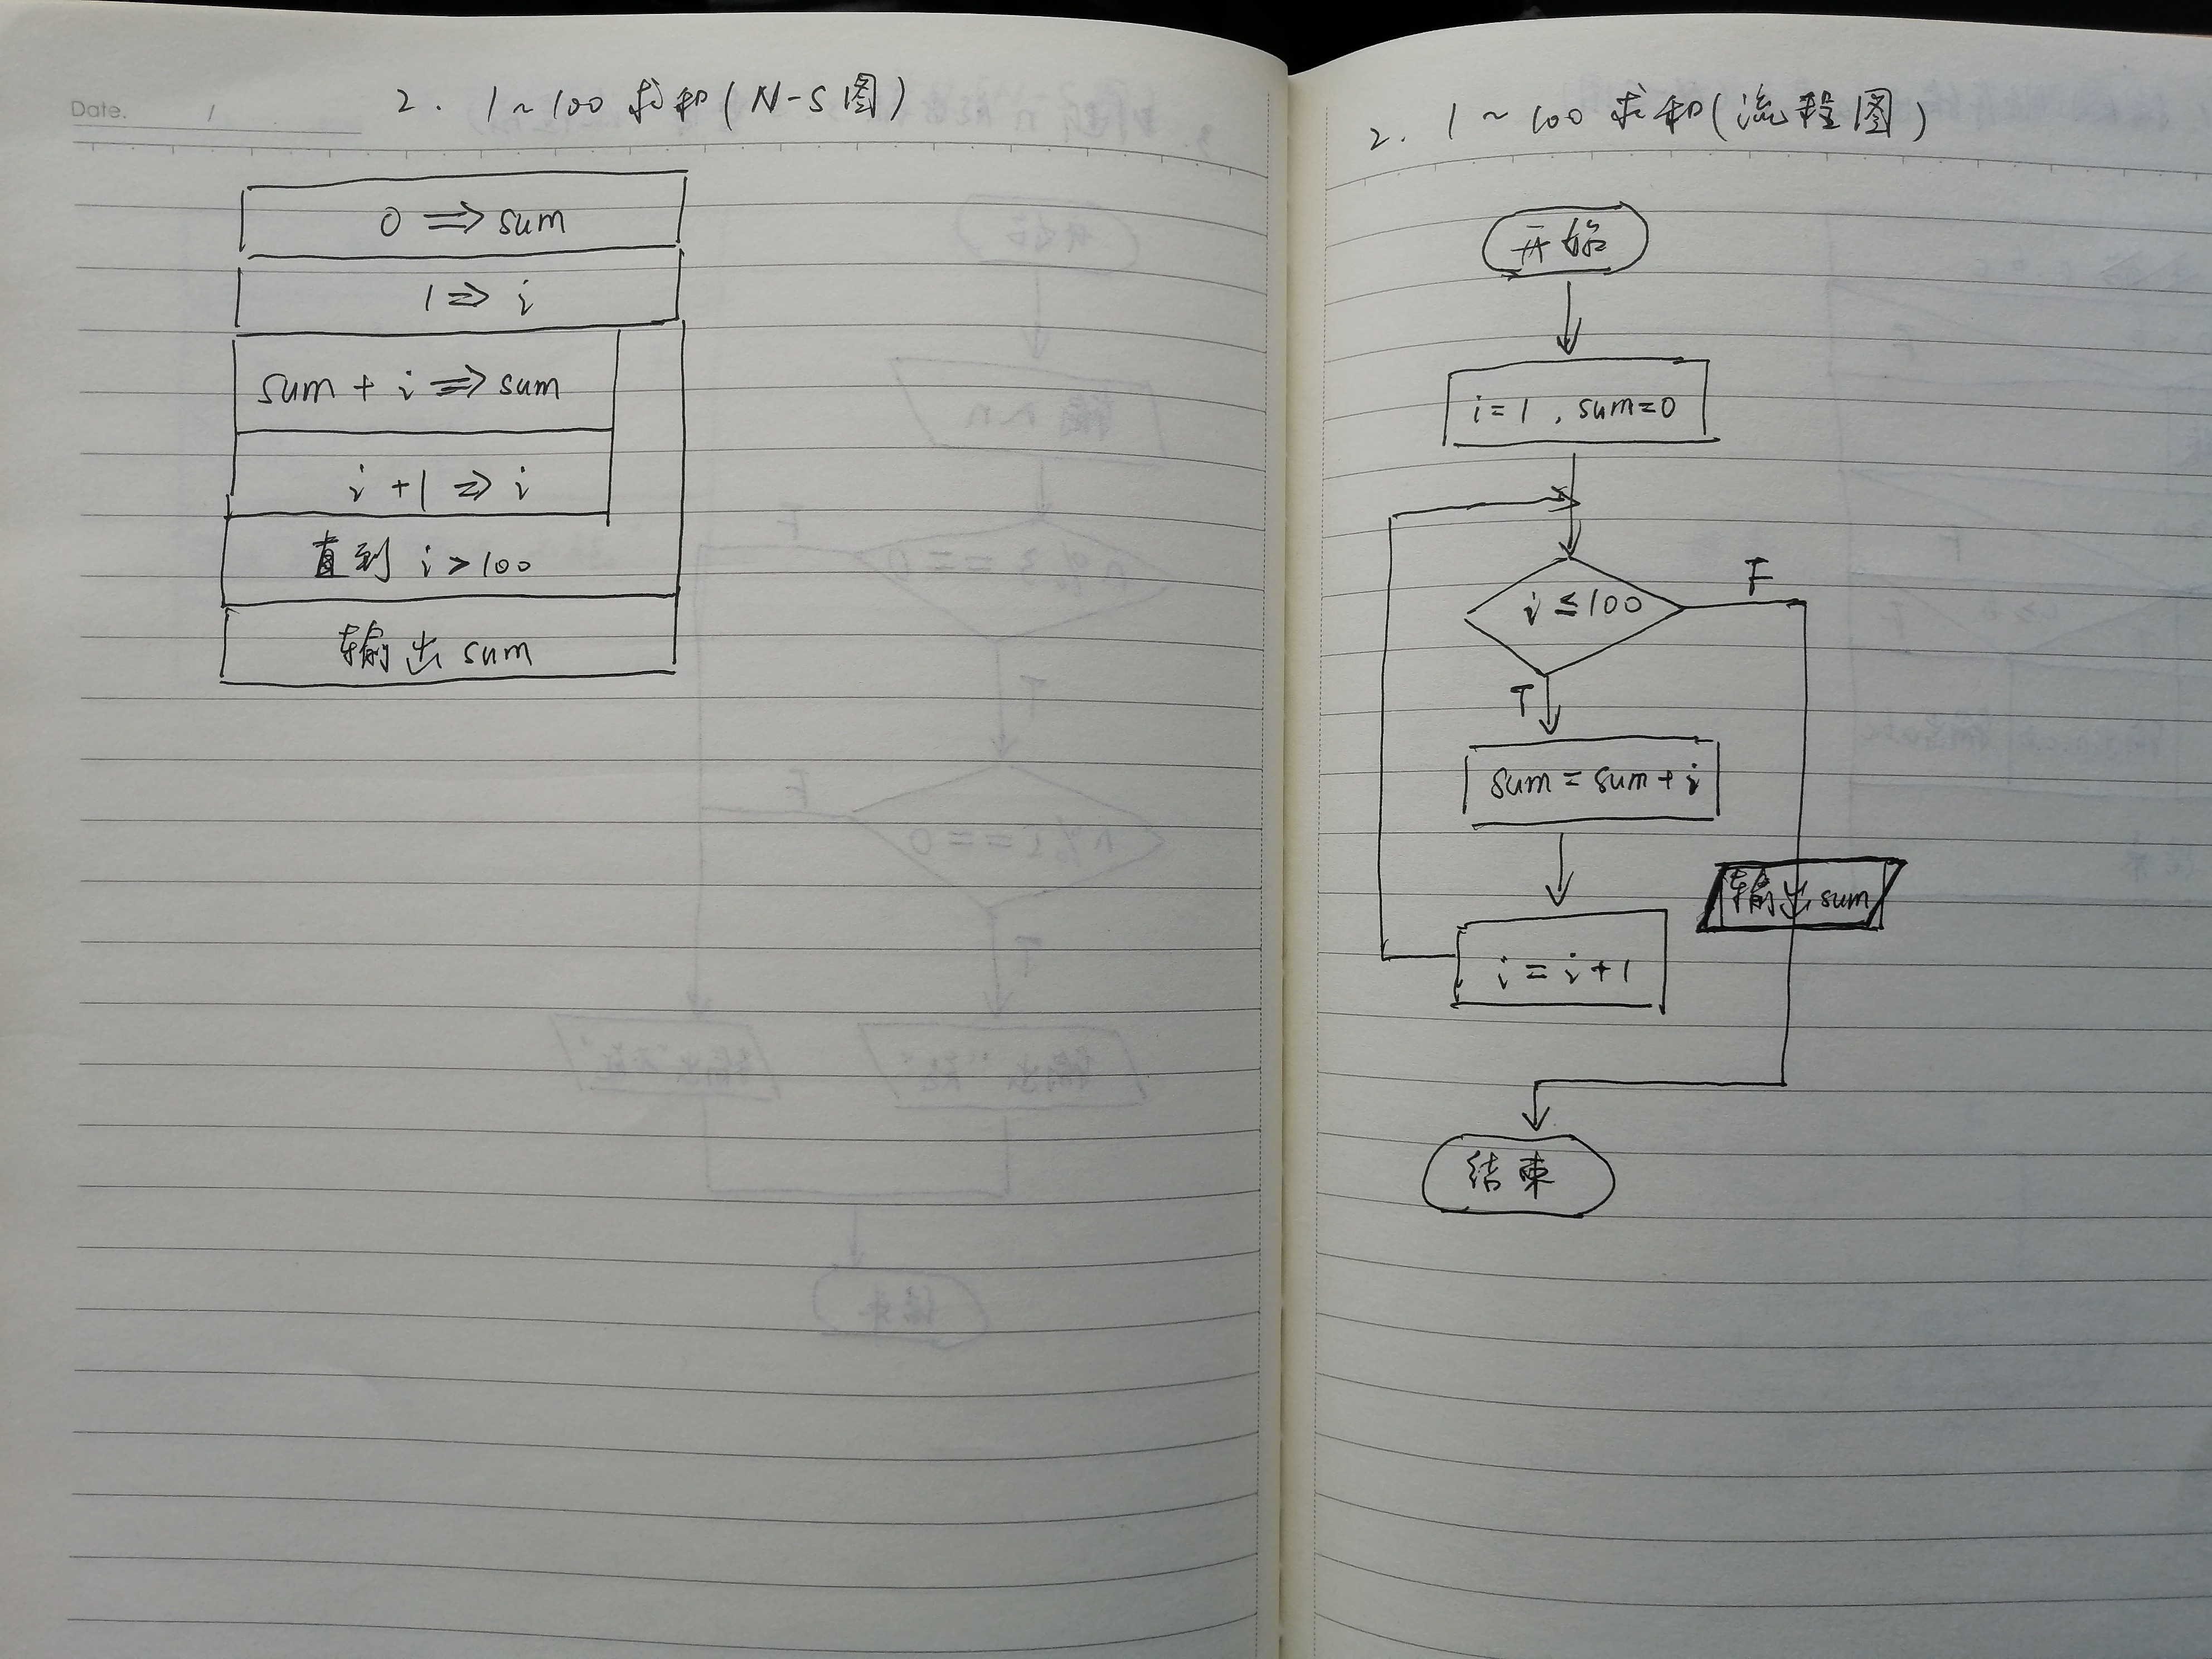 Date.
2. 1~100求和(N-S图)
0 ⇒ sum
1 ⇒ i
sum + i ⇒ sum
i + 1 ⇒ i
直到 i > 100
输出 sum
2. 1~100求和(流程图)
开始
i = 1 , sum = 0
i ≤ 100
F
T
sum = sum + i
输出 sum
i = i + 1
结束